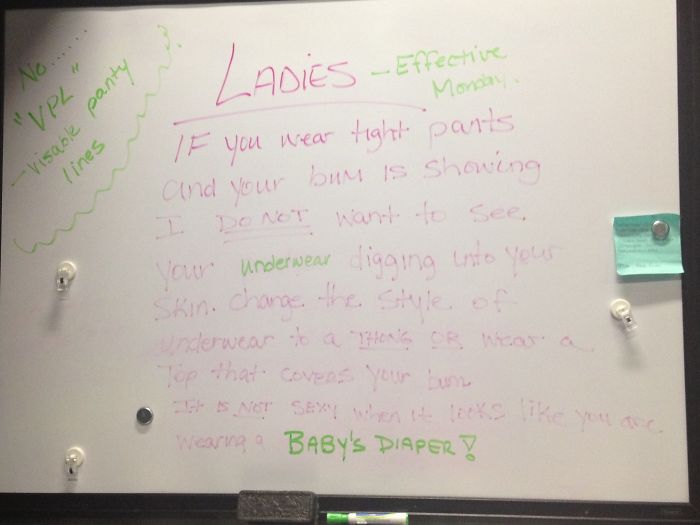 No......
"VPL"
- visable panty
lines
LADIES - Effective
Monday.
IF you wear tight pants
and your bum is showing
I DO NOT want to see
your underwear digging into your
skin. Change the style of
underwear to a THONG OR wear a
Top that covers your bum
It is NOT sexy when it looks like you are
wearing a BABY'S DIAPER!